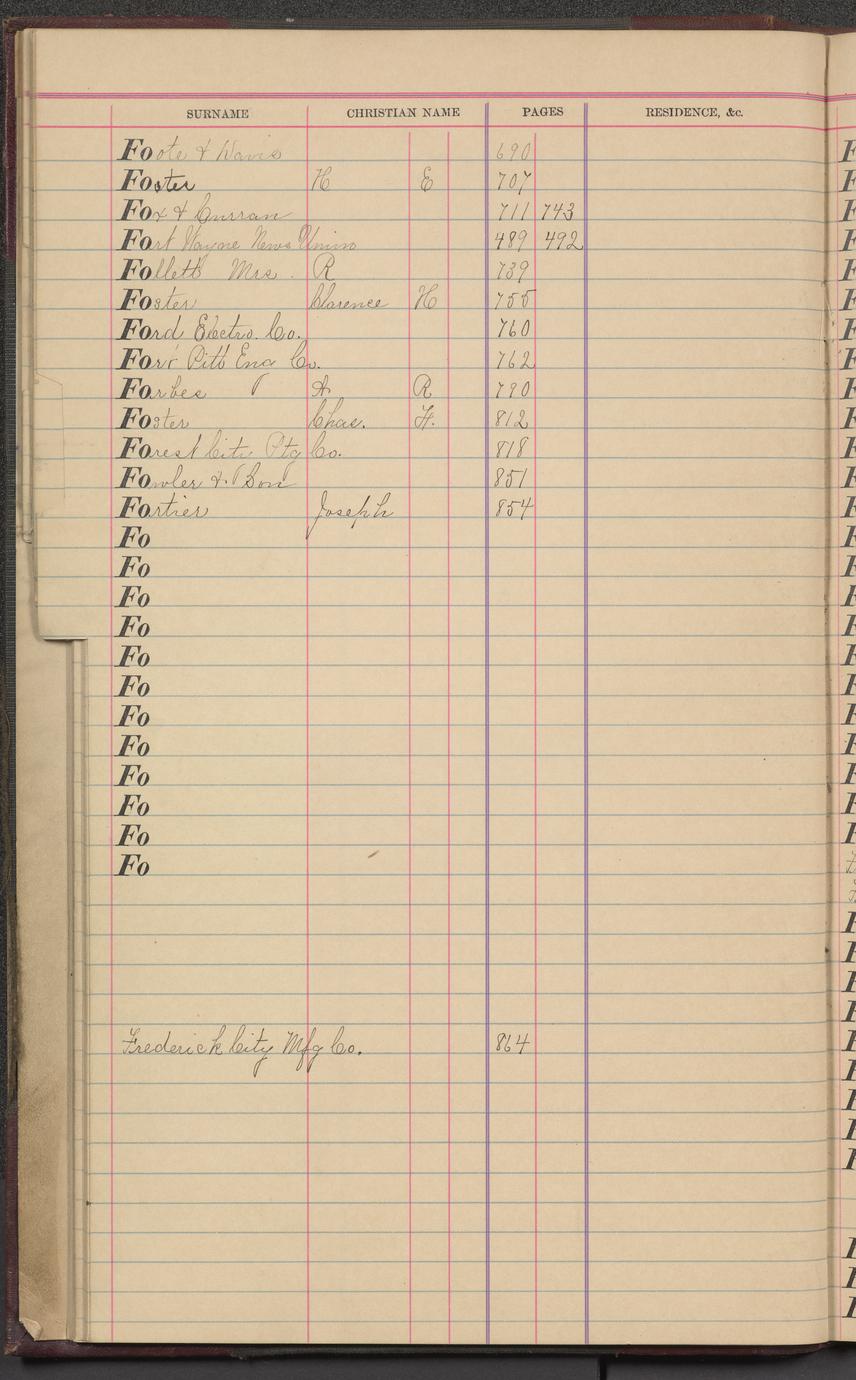 SURNAME CHRISTIAN NAME PAGES RESIDENCE, &c.
Foote & Davis 690
Foster H E 707
Fox & Curran 711 743
Fort Wayne News Union 489 492
Follett Mrs. R 739
Foster Clarence H 755
Ford Electro. Co. 760
Fort Pitt Eng Co. 762
Forbes A R 790
Foster Chas. F. 812
Forest City Ptg Co. 818
Fowler & Son 851
Fortier Joseph 854
Fo
Fo
Fo
Fo
Fo
Fo
Fo
Fo
Fo
Fo
Fo
Fo
Frederick City Mfg Co. 864